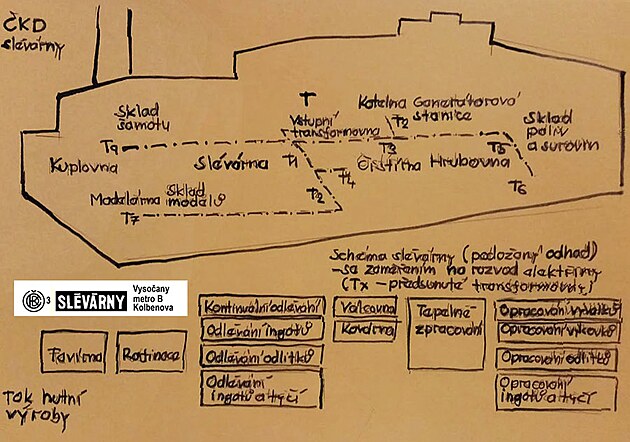 ČKD
slévárny
Sklad
šamotu
T
Vstupní
transformovna
Kotelna Generátorová
stanice
T2
Sklad
paliv
a surovin
T9
T1
T3
T5
Kuplovna
Slévárna
Čistírna Hrubovna
T4
T6
Modelárna
Sklad
modelů
T7
Schéma slévárny (podložený odhad)
- se zaměřením na rozvod elektřiny
(Tx - předsunuté transformovny)
ČKD 3 SLÉVÁRNY
Vysočany
metro B
Kolbenova
Kontinuální odlévání
Válcovna
Tepelné
zpracování
Opracování výválků
Odlévání ingotů
Kovárna
Opracování výkovků
Pavírna
Rafinace
Odlévání odlitků
Opracování odlitků
Odlévání
ingotů a tyčí
Opracování
ingotů a tyčí
Tok hutní
výroby